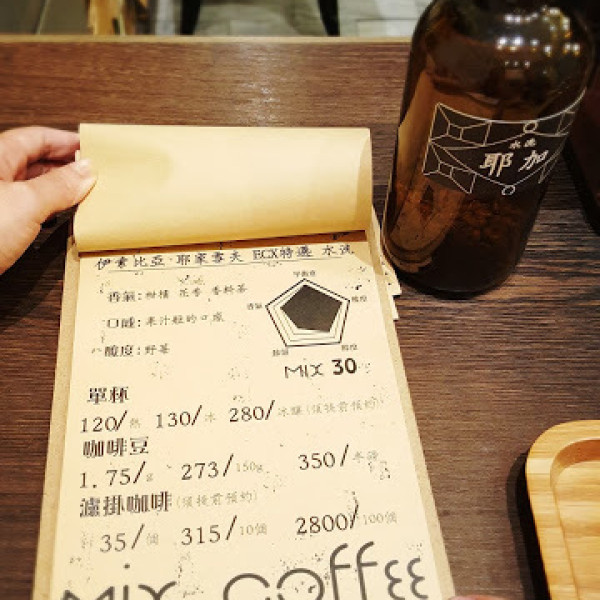 伊索比亞 耶家雪夫 ECX特選 水洗
香氣:柑橘 花香 香料茶
平衡度
香氣
酸度
口感:果汁般的口感
Mix 30
單杯
120/熱 130/冰 280/冰釀(須提前預約)
咖啡豆
1.75/g 273/150g 350/半磅
濾掛咖啡(須提前預約)
35/個 315/10個 2800/100個
Mix Coffee
水洗
耶加